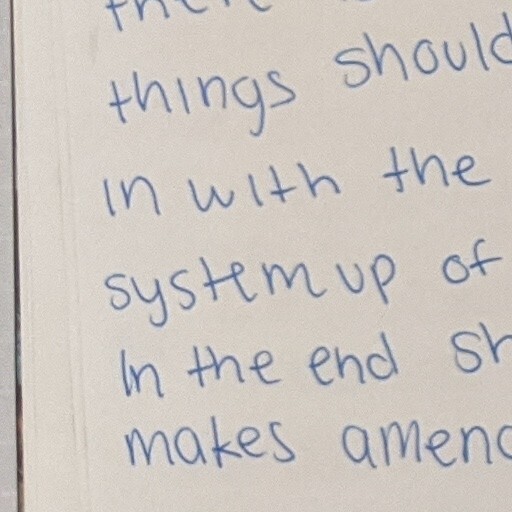 things should
in with the
system up of
In the end sh
makes amen